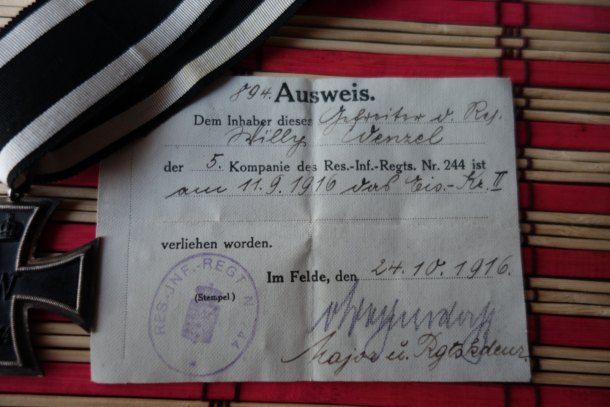 894. Ausweis.
Dem Inhaber dieses Gefreiter d. Res.
Willy Wenzel
der 5. Kompanie des Res.-Inf.-Regts. Nr. 244 ist
am 11.9.1916 das Eis.-Kr. II
verliehen worden.
Im Felde, den 24.10.1916.
(Stempel)
RES.-INF.-REGT. N 44
Major u. Rgts.